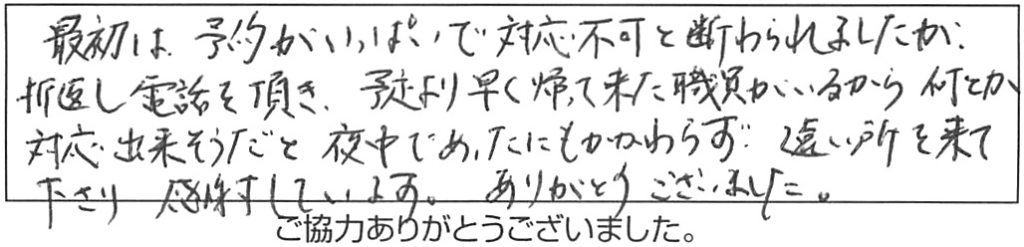 最初は、予約がいっぱいで対応不可と断わられましたが、
折返し電話を頂き、予定より早く帰って来た職員がいるから何とか
対応出来そうだと夜中であったにもかかわらず遠い所を来て
下さり感謝しています。ありがとうございました。
ご協力ありがとうございました。